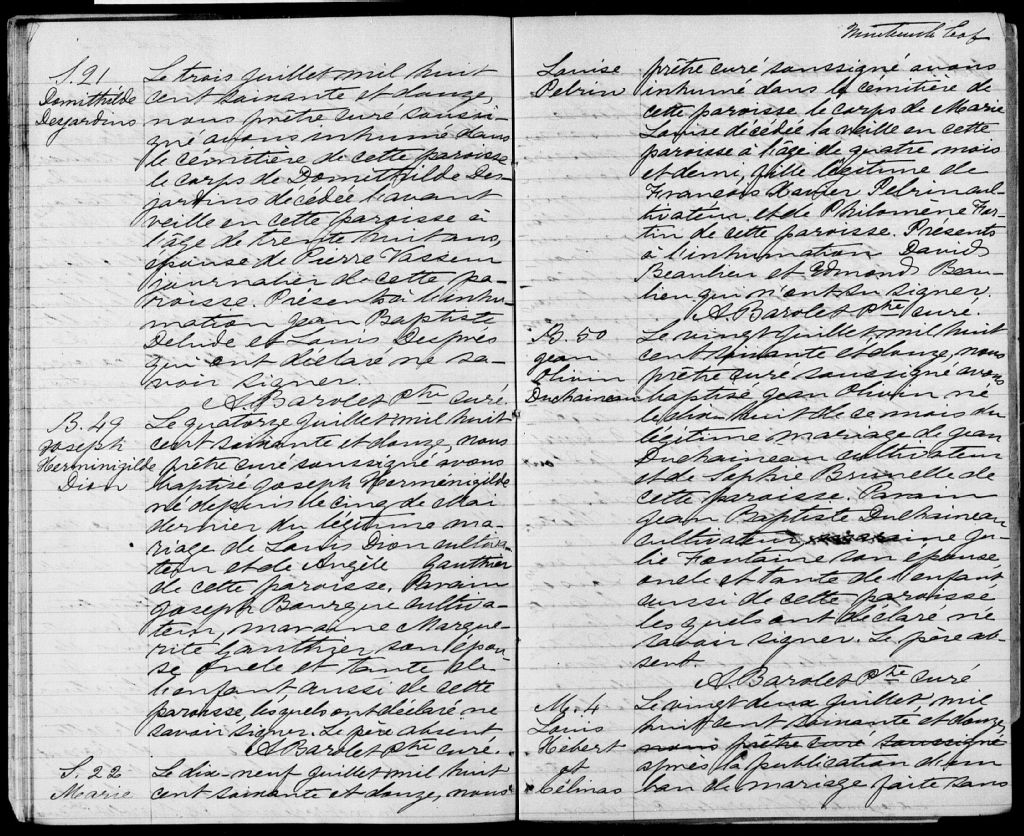 S. 21
Domithilde
Desjardins
Le trois juillet mil huit
cent soixante et douze,
nous prêtre curé soussi-
gné avons inhumé dans
le cemitière de cette paroisse
le corps de Domithilde Des-
jardins décédée l'avant
veille en cette paroisse à
l'age de trente huit ans,
epouse de Pierre Vasseur
journalier de cette pa-
roisse. Présents à l'inhu-
mation Jean Baptiste
Delude et Louis Després
qui ont déclaré ne sa-
voir signer.
A. Barolet Ptre curé.
B. 49
Joseph
Herminigilde
Dion
Le quatorze juillet mil huit
cent soixante et douze, nous
prêtre curé soussigné avons
baptisé Joseph Herménigilde
né depuis le cinq de Mai
dernier du légitime ma-
riage de Louis Dion cultiva-
teur et de Angèle Gauthier
de cette paroisse. Parain
Joseph Bourque cultiva-
teur, maraine Margue-
rite Gauthier son épou-
se oncle et tante de
l'enfant aussi de cette
paroisse, lesquels ont déclaré ne
savoir signer. Le père absent
A Barolet ptre curé.
S. 22
Marie
Le dix-neuf juillet mil huit
cent soixante et douze, nous
Nineteenth Leaf
Louise
Pelrin
prêtre curé soussigné avons
inhumé dans le cémitière de
cette paroisse, le corps de Marie
Louise décédée la veille en cette
paroisse à l'age de quatre mois
et demi, fille légitime de
François Xavier Pelrin cul-
tivateur et de Philomène For-
tin de cette paroisse. Présents
à l'inhumation David
Beaulieu et Edmond Beau-
lieu qui n'ont su signer.
A Barolet Ptre curé.
B. 50
Jean
Olivin
Duchaineau
Le vingt juillet, mil huit
cent soixante et douze, nous
prêtre curé soussigné avons
baptisé Jean Olivin né
le dix huit de ce mois du
légitime mariage de Jean
Duchaineau cultivateur
et de Sophie Brunelle de
cette paroisse. Parain
Jean Baptiste Duchaineau
cultivateur, maraine Ju-
lie Fontaine son épouse,
oncle et tante de l'enfant
aussi de cette paroisse
lesquels ont déclaré ne
savoir signer. Le père ab-
sent.
A Barolet Ptre curé
M. 4
Louis
Hébert
et
Célinas
Le vingt deux juillet, mil
huit cent soixante et douze,
nous prêtre curé soussigné
après la publication d'un
ban de mariage faite sans